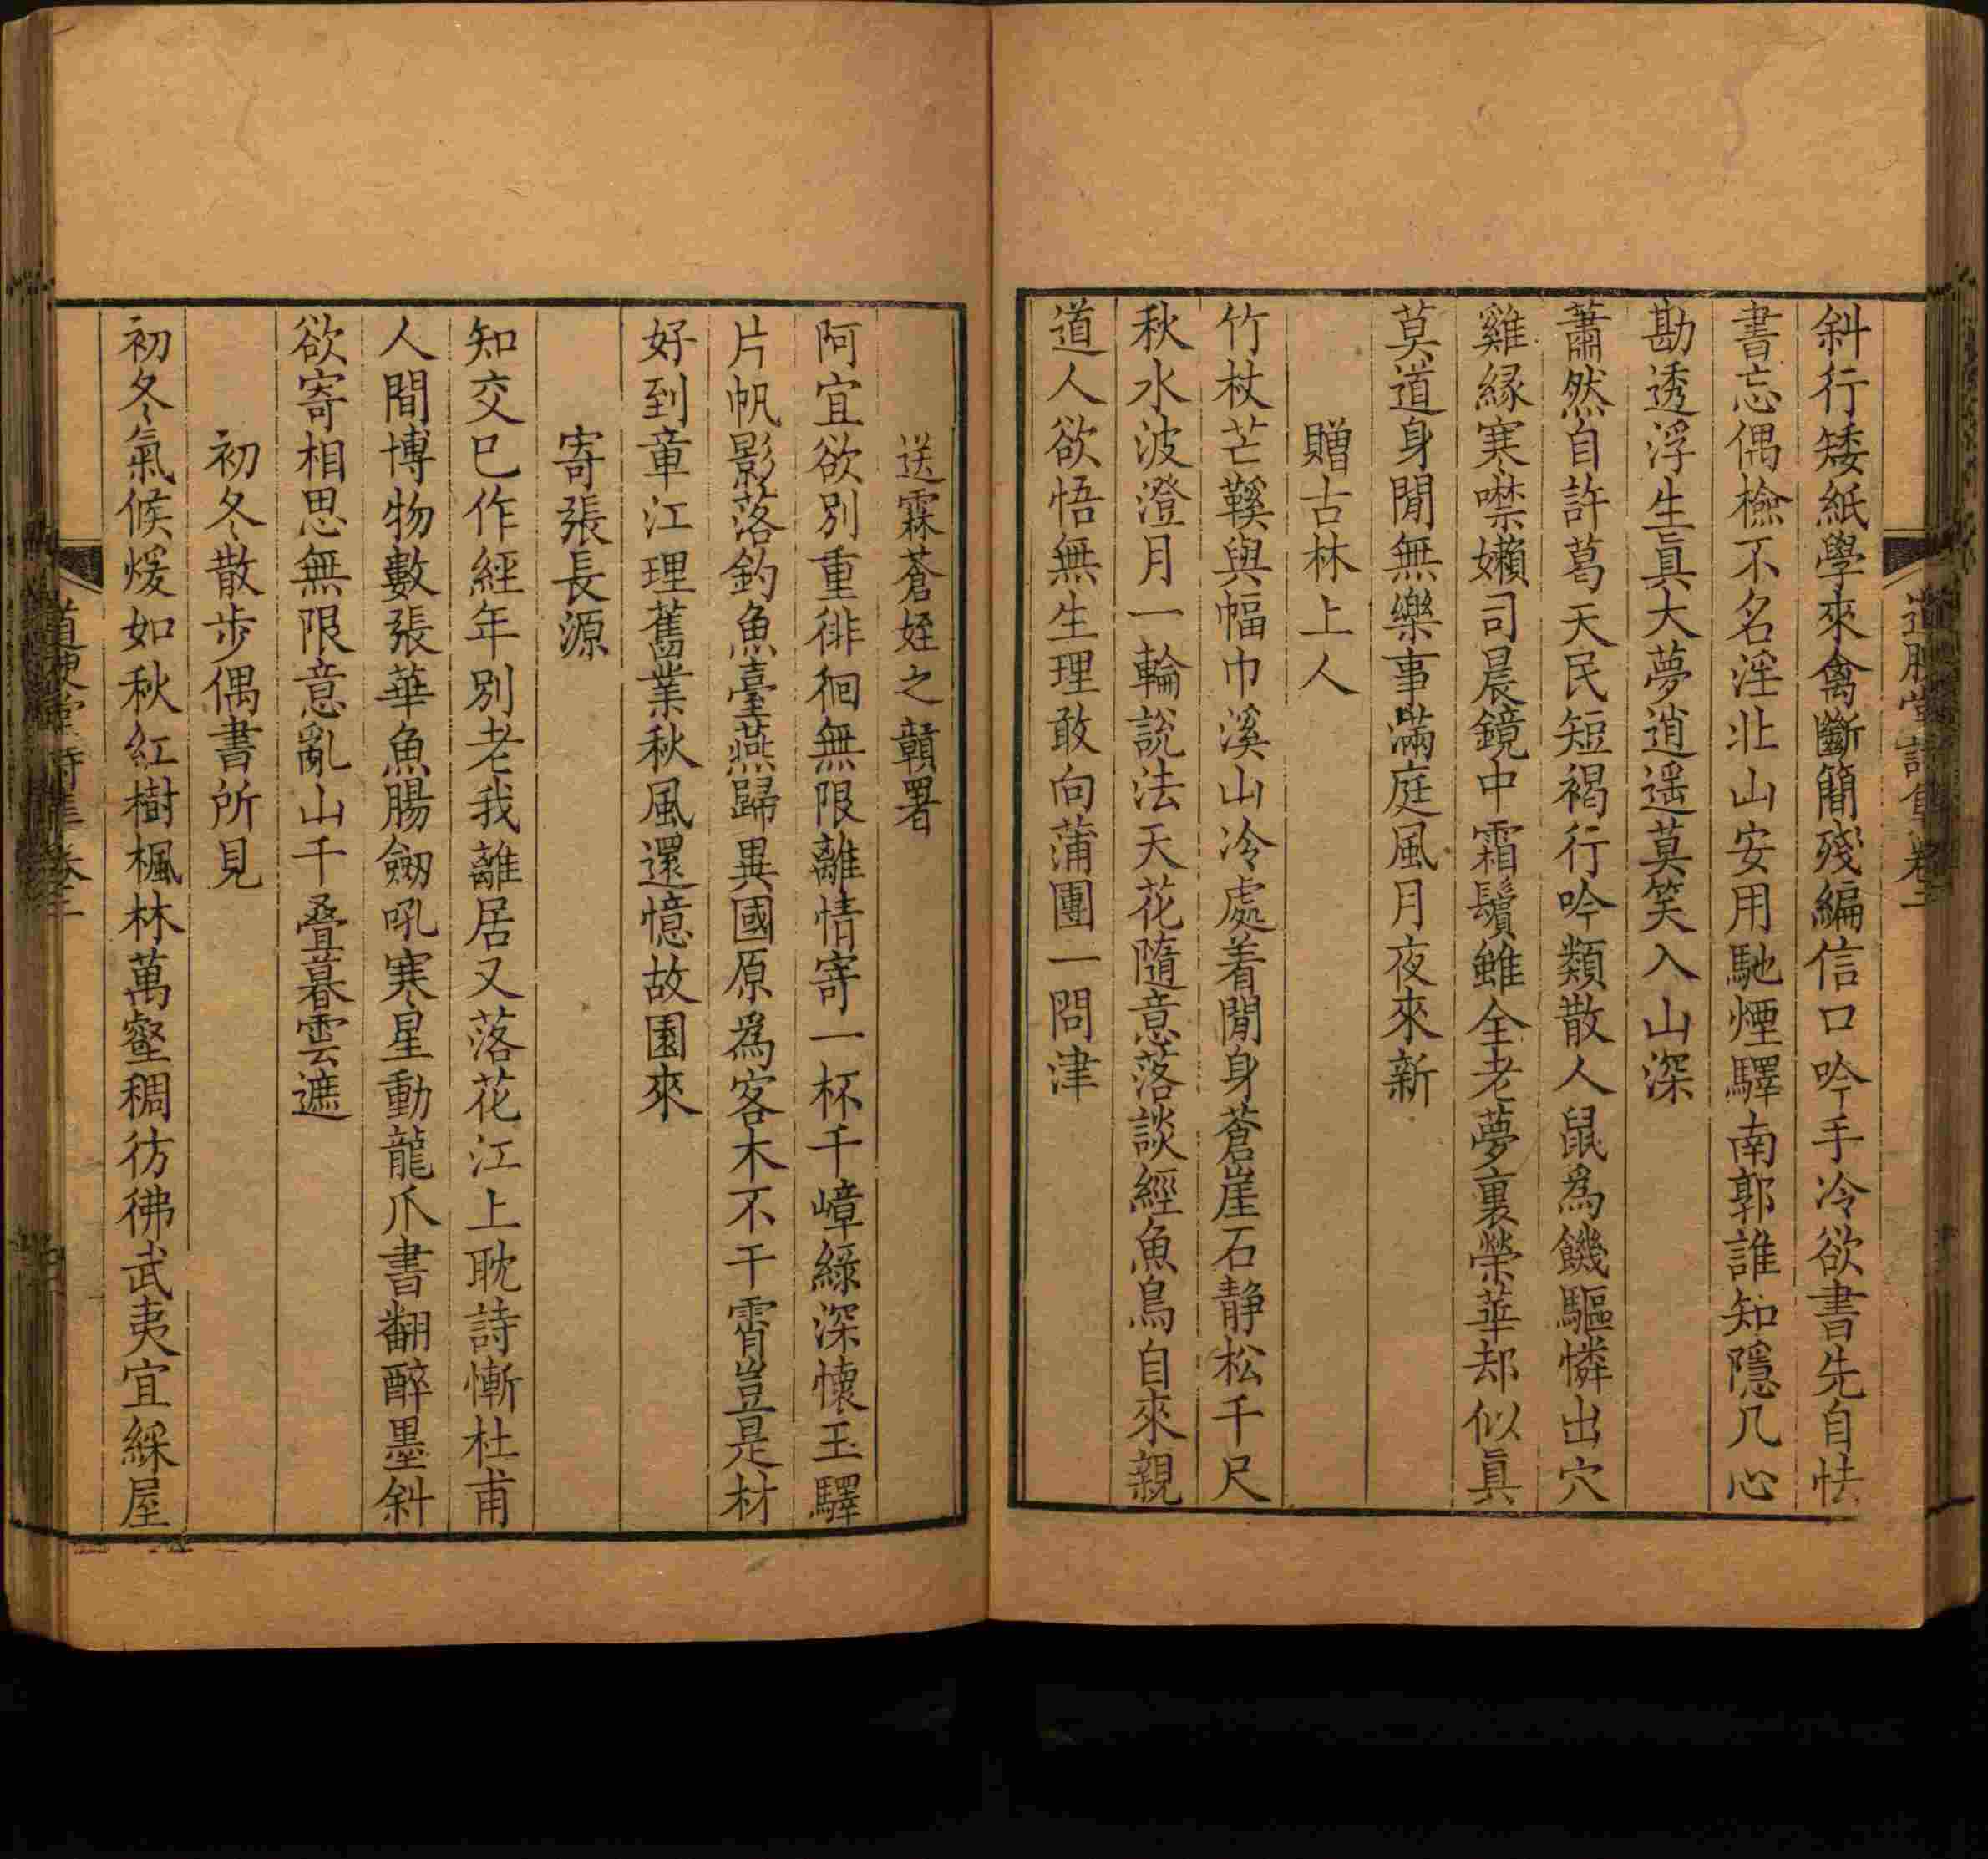 斜行矮紙學來禽斷簡殘編信口吟手冷欲書先自怯
書忘偶檢不名淫北山安用馳煙驛南郭誰知隱几心
勘透浮生眞大夢逍遥莫笑入山深
蕭然自許葛天民短褐行吟類散人鼠爲饑驅憐出穴
雞緣寒噤嬾司晨鏡中霜鬢雖全老夢裏榮華却似眞
莫道身閒無樂事滿庭風月夜來新
贈古林上人
竹杖芒鞵與幅巾溪山冷處着閒身蒼崖石静松千尺
秋水波澄月一輪說法天花隨意落談經魚鳥自來親
道人欲悟無生理敢向蒲團一問津
送霖蒼姪之贛署
阿宜欲別重徘徊無限離情寄一杯千嶂綠深懷玉驛
片帆影落釣魚臺燕歸異國原爲客木不干霄豈是材
好到章江理舊業秋風還憶故園來
寄張長源
知交巳作經年別老我離居又落花江上耽詩慚杜甫
人間博物數張華魚腸劒吼寒星動龍爪書翻醉墨斜
欲寄相思無限意亂山千叠暮雲遮
初冬散步偶書所見
初冬氣候煖如秋紅樹楓林萬壑稠彷彿武夷宜綵屋
詩集卷二